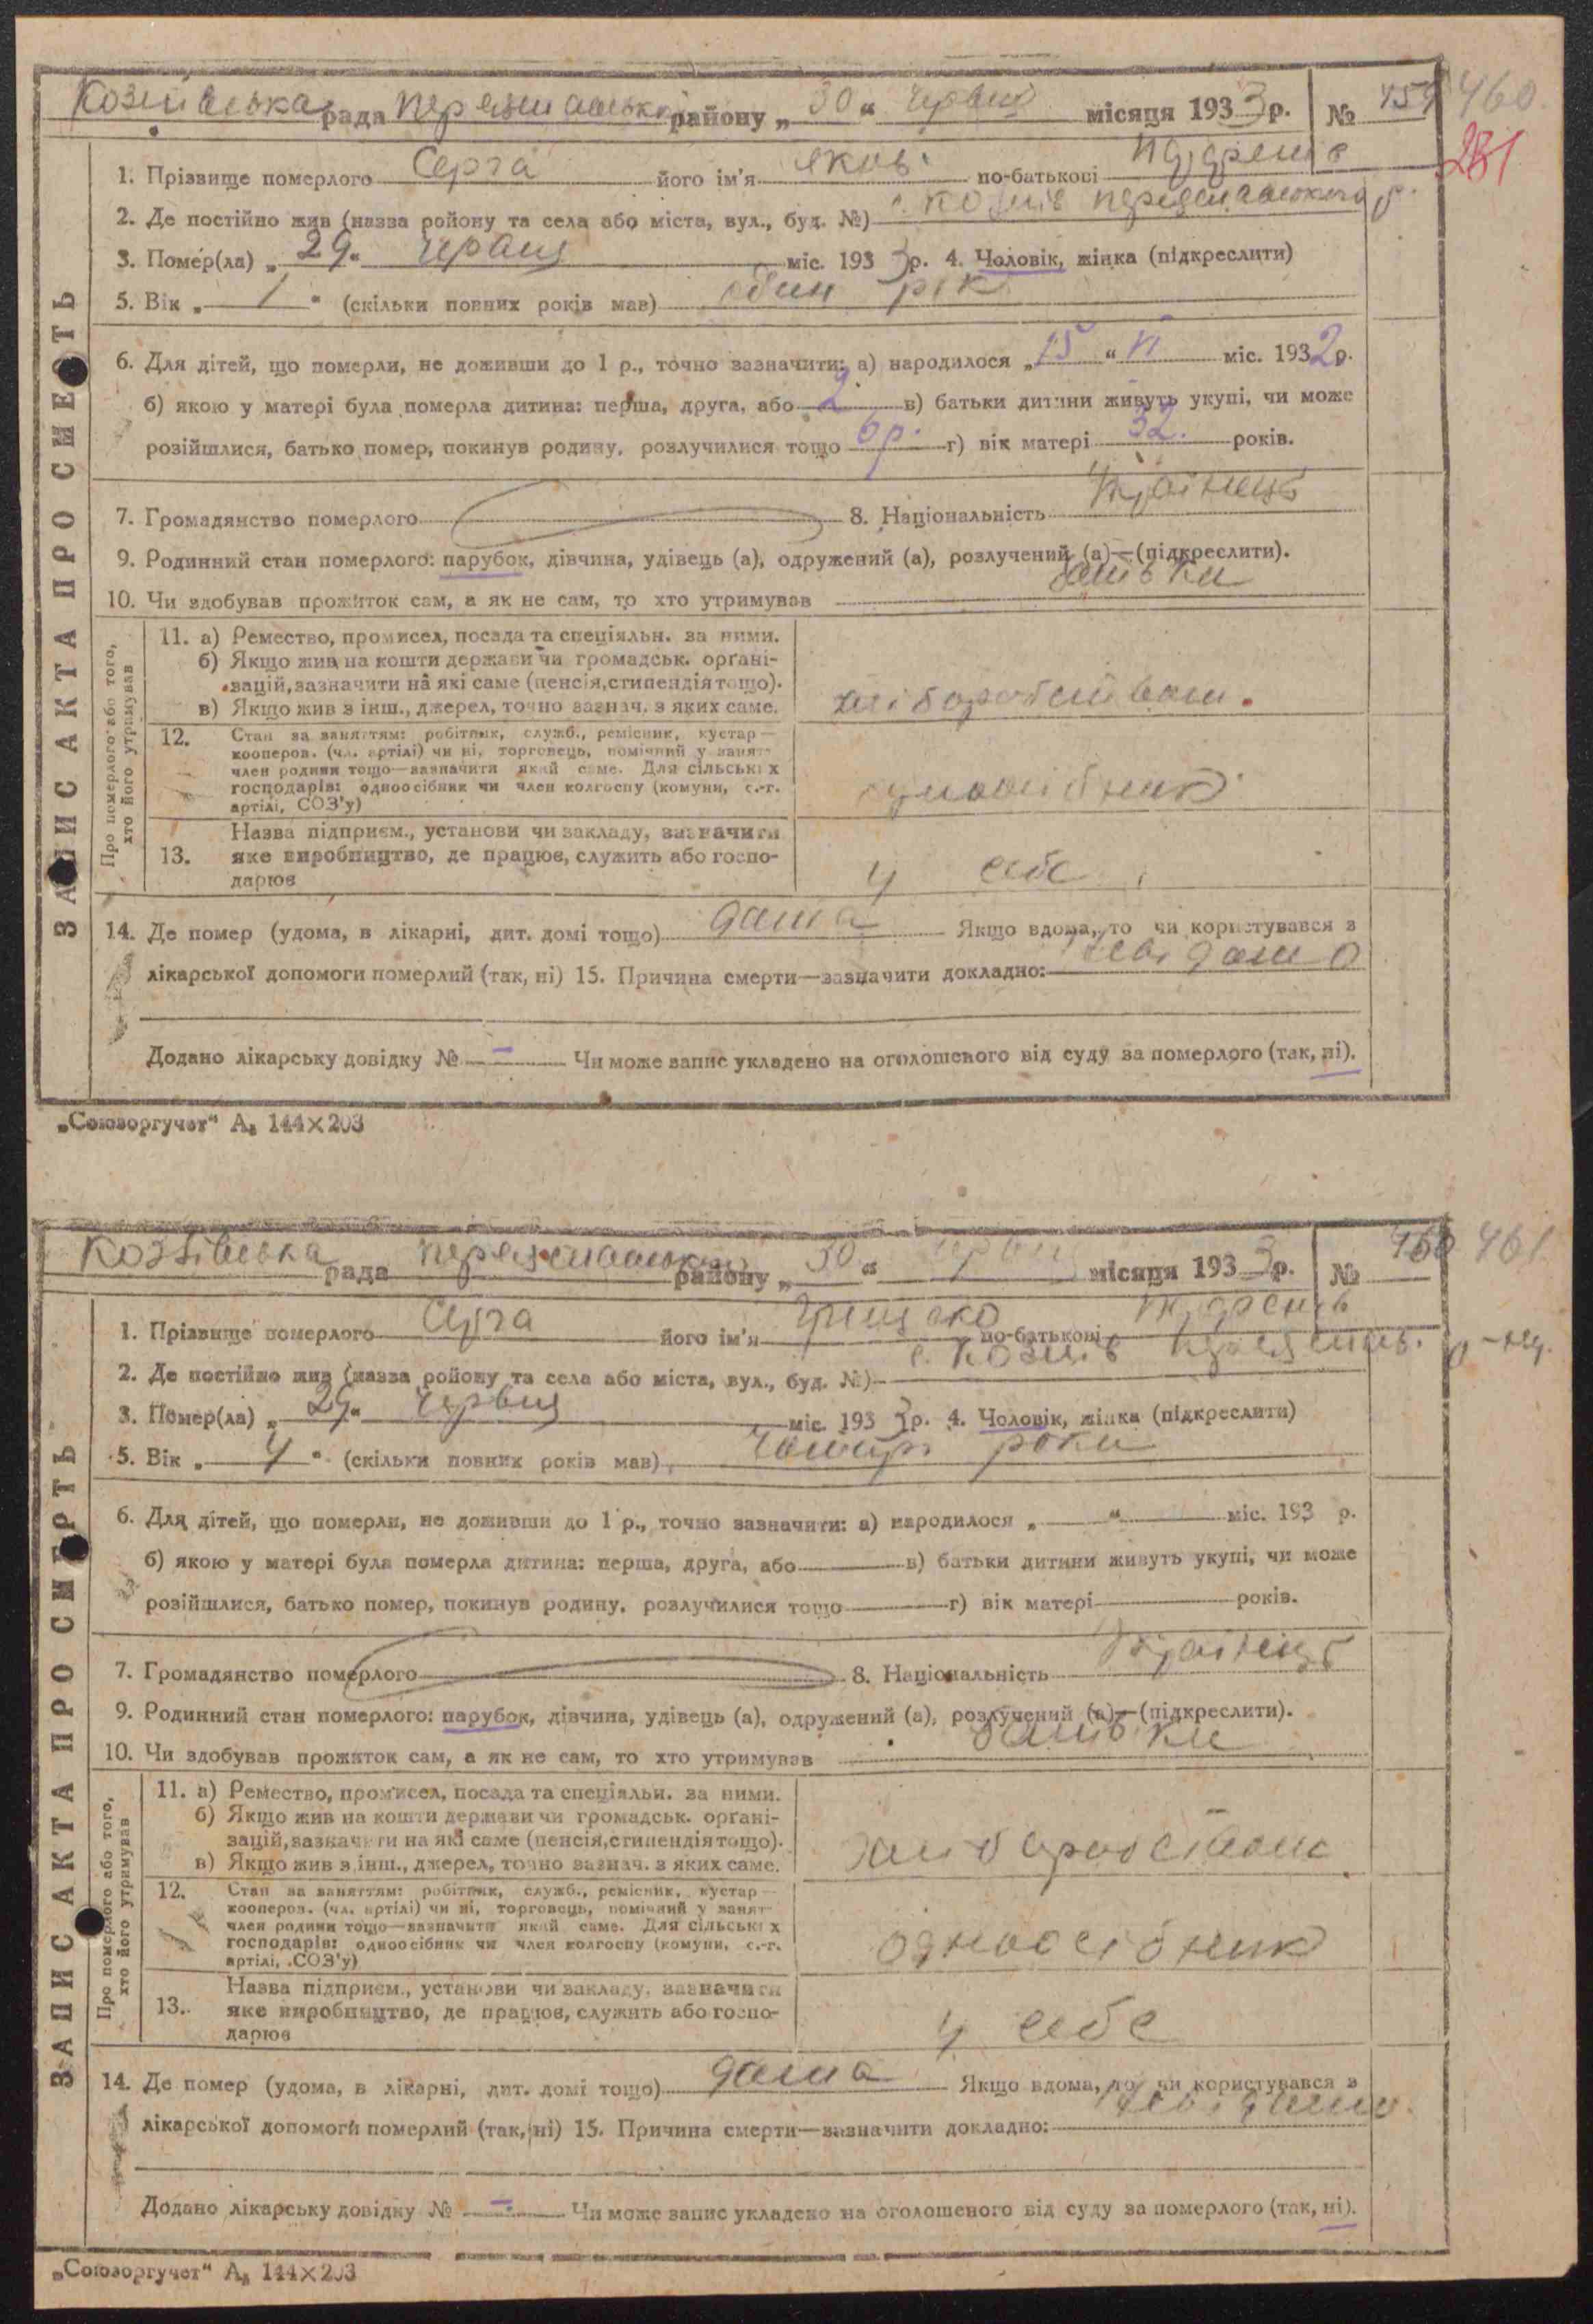 Козіївська рада Переяславськ району „ 30 “ червня місяця 1933 р. № 459 460
281
1. Прізвище померлого Серга його ім'я Яков по-батькові
2. Де постійно жив (назва ройону та села або міста, вул., буд. №) с. Козлів Переяславського р.
3. Помер(ла) „ 29 “ червня міс. 1933 р. 4. Чоловік, жінка (підкреслити)
5. Вік „ 1 “ (скільки повних років мав) один рік
6. Для дітей, що померли, не доживши до 1 р., точно зазначити: а) народилося „ 15 “ VI міс. 1932 р.
б) якою у матері була померла дитина: перша, друга, або 2 в) батьки дитини живуть укупі, чи може
розійшлися, батько помер, покинув родину, розлучилися тощо г) вік матері 32. років.
7. Громадянство померлого 8. Національність Українець
9. Родинний стан померлого: парубок, дівчина, удівець (а), одружений (а), розлучений (а)—(підкреслити).
10. Чи здобував прожиток сам, а як не сам, то хто утримував батьки
ЗАПИС АКТА ПРО СМЕРТЬ
Про померлого або того, хто його утримував
11. а) Ремество, промисел, посада та спеціяльн. за ними.
б) Якщо жив на кошти держави чи громадськ. орґані-
зацій, зазначити на які саме (пенсія, стипендія тощо).
в) Якщо жив з інш., джерел, точно зазнач. з яких саме.
12. Стан за заняттям: робітник, служб., ремісник, кустар—
кооперов. (чл. артілі) чи ні, торговець, помічний у занят-
член родини тощо—зазначити який саме. Для сільських
господарів: одноосібник чи член колгоспу (комуни, с.-г.
артілі, СОЗ'у)
одноосібник
13. Назва підприєм., установи чи закладу, зазначити
яке виробництво, де працює, служить або госпо-
дарює
у себе
14. Де помер (удома, в лікарні, дит. домі тощо) дома Якщо вдома, то чи користувався з
лікарської допомоги померлий (так, ні) 15. Причина смерти—зазначити докладно: невідомо
Додано лікарську довідку № – Чи може запис укладено на оголошеного від суду за померлого (так, ні).
„Союзоргучет“ А₅ 144×203
Козлівська рада Переяславськ району „ 30 “ червня місяця 1933 р. № 460 461
1. Прізвище померлого Серга його ім'я Грицько по-батькові
2. Де постійно жив (назва ройону та села або міста, вул., буд. №) с. Козлів Переяславс.
3. Помер(ла) „ 29 “ червня міс. 1933 р. 4. Чоловік, жінка (підкреслити)
5. Вік „ 4 “ (скільки повних років мав) чотири роки
6. Для дітей, що померли, не доживши до 1 р., точно зазначити: а) народилося „ “ міс. 193 р.
б) якою у матері була померла дитина: перша, друга, або в) батьки дитини живуть укупі, чи може
розійшлися, батько помер, покинув родину, розлучилися тощо г) вік матері років.
7. Громадянство померлого 8. Національність Українець
9. Родинний стан померлого: парубок, дівчина, удівець (а), одружений (а), розлучений (а)—(підкреслити).
10. Чи здобував прожиток сам, а як не сам, то хто утримував батьки
ЗАПИС АКТА ПРО СМЕРТЬ
Про померлого або того, хто його утримував
11. а) Ремество, промисел, посада та спеціяльн. за ними.
б) Якщо жив на кошти держави чи громадськ. орґані-
зацій, зазначити на які саме (пенсія, стипендія тощо).
в) Якщо жив з інш., джерел, точно зазнач. з яких саме.
12. Стан за заняттям: робітник, служб., ремісник, кустар—
кооперов. (чл. артілі) чи ні, торговець, помічний у занят-
член родини тощо—зазначити який саме. Для сільських
господарів: одноосібник чи член колгоспу (комуни, с.-г.
артілі, СОЗ'у)
одноосібник
13. Назва підприєм., установи чи закладу, зазначити
яке виробництво, де працює, служить або госпо-
дарює
у себе
14. Де помер (удома, в лікарні, дит. домі тощо) дома Якщо вдома, то чи користувався з
лікарської допомоги померлий (так, ні) 15. Причина смерти—зазначити докладно: невідомо.
Додано лікарську довідку № – Чи може запис укладено на оголошеного від суду за померлого (так, ні).
„Союзоргучет“ А₅ 144×203